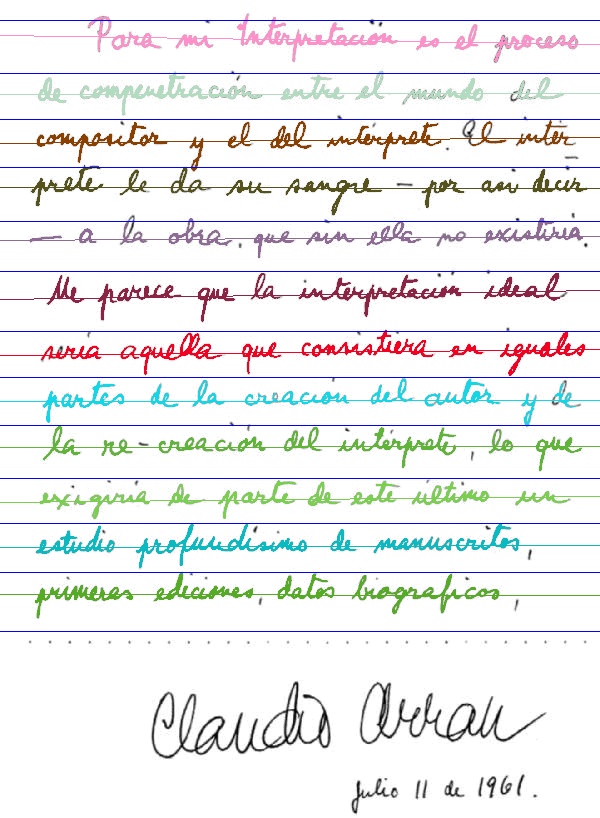 Para mi Interpretación es el proceso
de compenetración entre el mundo del
compositor y el del intérprete. El intér
prete le da su sangre — por asi decir
— a la obra, que sin ella no existiría.
Me parece que la interpretación ideal
sería aquella que consistiera en iguales
partes de la creación del autor y de
la re-creación del intérprete, lo que
exigiría de parte de este último un
estudio profundísimo de manuscritos,
primeras ediciones, datos biograficos,
Claudio Arrau
Julio 11 de 1961.